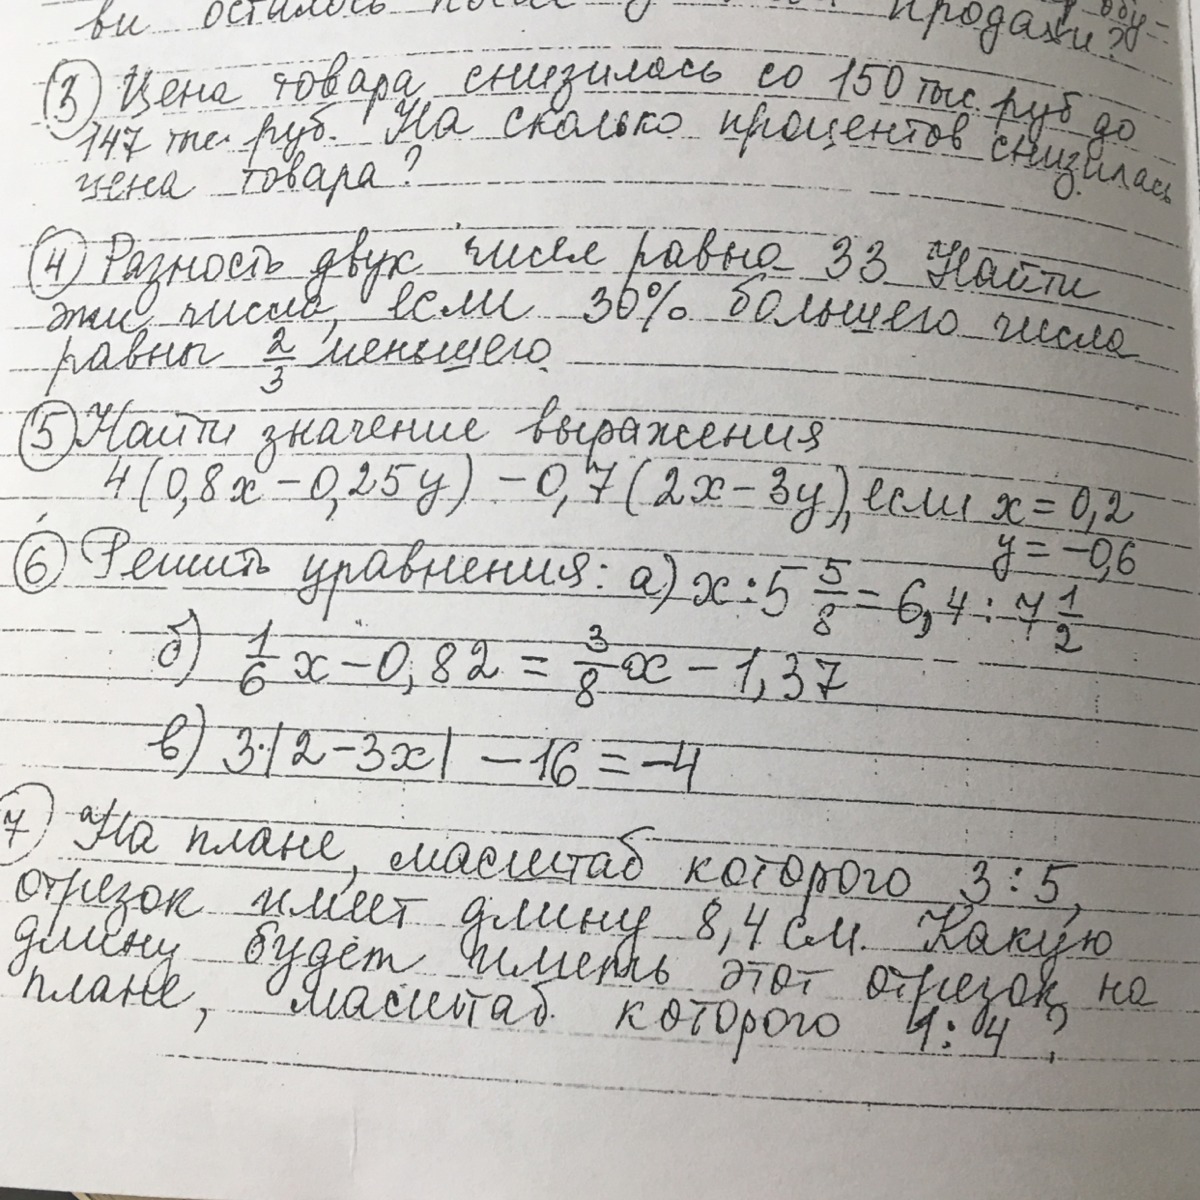 ви осталось после продажи?
③ Цена товара снизилась со 150 тыс. руб до
147 тыс. руб. На сколько процентов снизилась
цена товара?
④ Разность двух чисел равна 33 Найти
эти числа, если 30% большего числа
равны 2/3 меньшего.
⑤ Найти значение выражения
4(0,8x-0,25y) -0,7(2x-3y), если x=0,2
y=-0,6
⑥ Решить уравнения: а) x:5 5/8=6,4:7 1/2
б) 1/6 x-0,82=3/8 x-1,37
в) 3·|2-3x| -16=-4
⑦ На плане, масштаб которого 3:5,
отрезок имеет длину 8,4 см. Какую
длину будет иметь этот отрезок на
плане, масштаб которого 1:4?